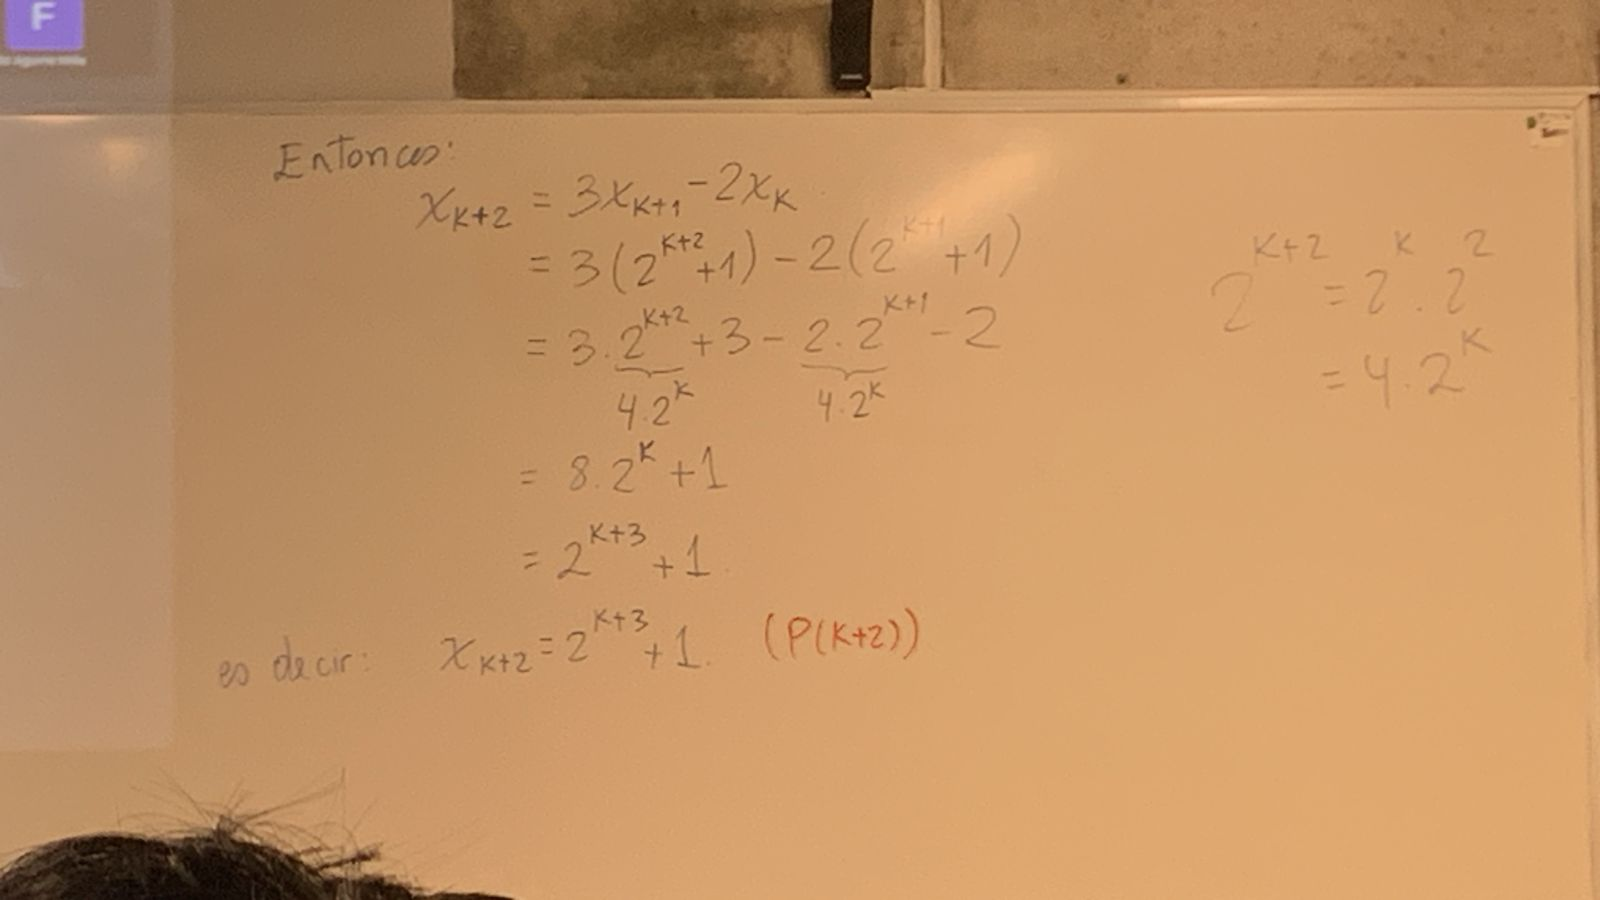 F
Entonces:
x_{K+2} = 3x_{K+1} - 2x_K
= 3(2^{K+2}+1) - 2(2^{K+1}+1)
= 3.2^{K+2} + 3 - 2.2^{K+1} - 2
4.2^K 4.2^K
= 8.2^K + 1
= 2^{K+3} + 1.
es decir: x_{K+2} = 2^{K+3} + 1. (P(K+2))
2^{K+2} = 2^K . 2^2
= 4.2^K